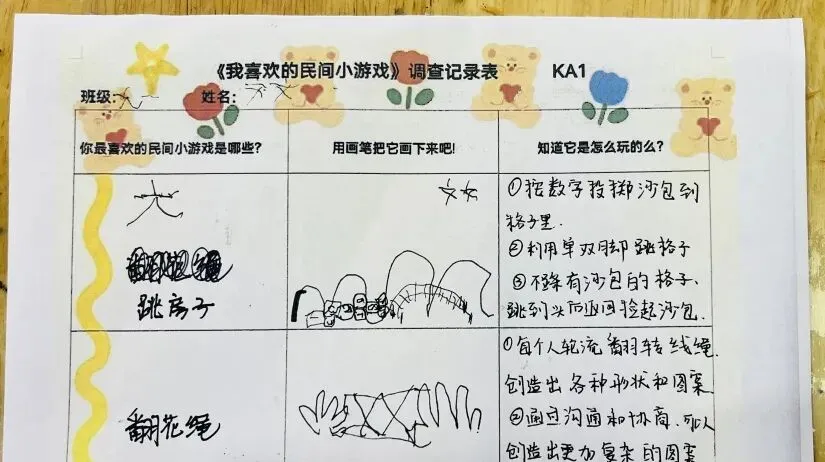 《我喜欢的民间小游戏》调查记录表 KA1
班级:
姓名:
你最喜欢的民间小游戏是哪些?
用画笔把它画下来吧!
知道它是怎么玩的么?
大
跳房子
①按数字投掷沙包到
格子里.
②利用单双脚跳格子
③不踩有沙包的格子、
跳到头后返回捡起沙包.
翻花绳
①每个人轮流翻转线绳.
创造出各种形状和图案
②通过沟通和协商.可以
创造出更加复杂的图案